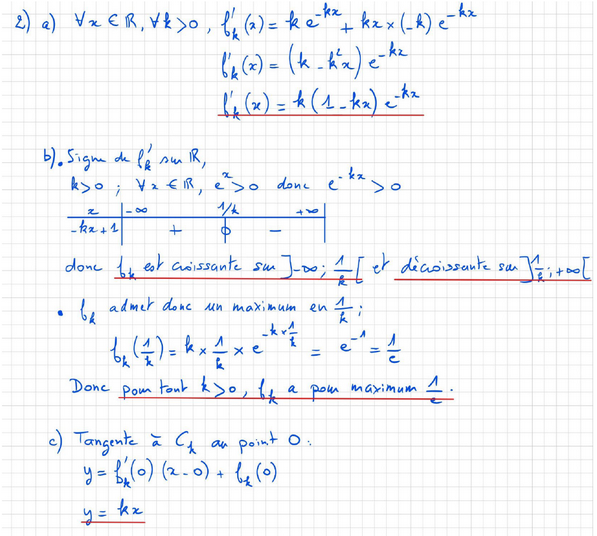 2) a) ∀x ∈ ℝ, ∀k > 0, f'ₖ(x) = k e^{-kx} + kx × (-k) e^{-kx}
f'ₖ(x) = (k - k²x) e^{-kx}
f'ₖ(x) = k (1 - kx) e^{-kx}
b) • Signe de f'ₖ sur ℝ,
k > 0 ; ∀x ∈ ℝ, e^x > 0 donc e^{-kx} > 0
x | -∞ 1/k +∞
-kx + 1 | + 0 -
donc fₖ est croissante sur ]-∞; 1/k[ et décroissante sur ]1/k; +∞[
• fₖ admet donc un maximum en 1/k ;
fₖ(1/k) = k × 1/k × e^{-k × 1/k} = e^{-1} = 1/e
Donc pour tout k > 0, fₖ a pour maximum 1/e.
c) Tangente à Cₖ au point O :
y = f'ₖ(0) (x - 0) + fₖ(0)
y = kx